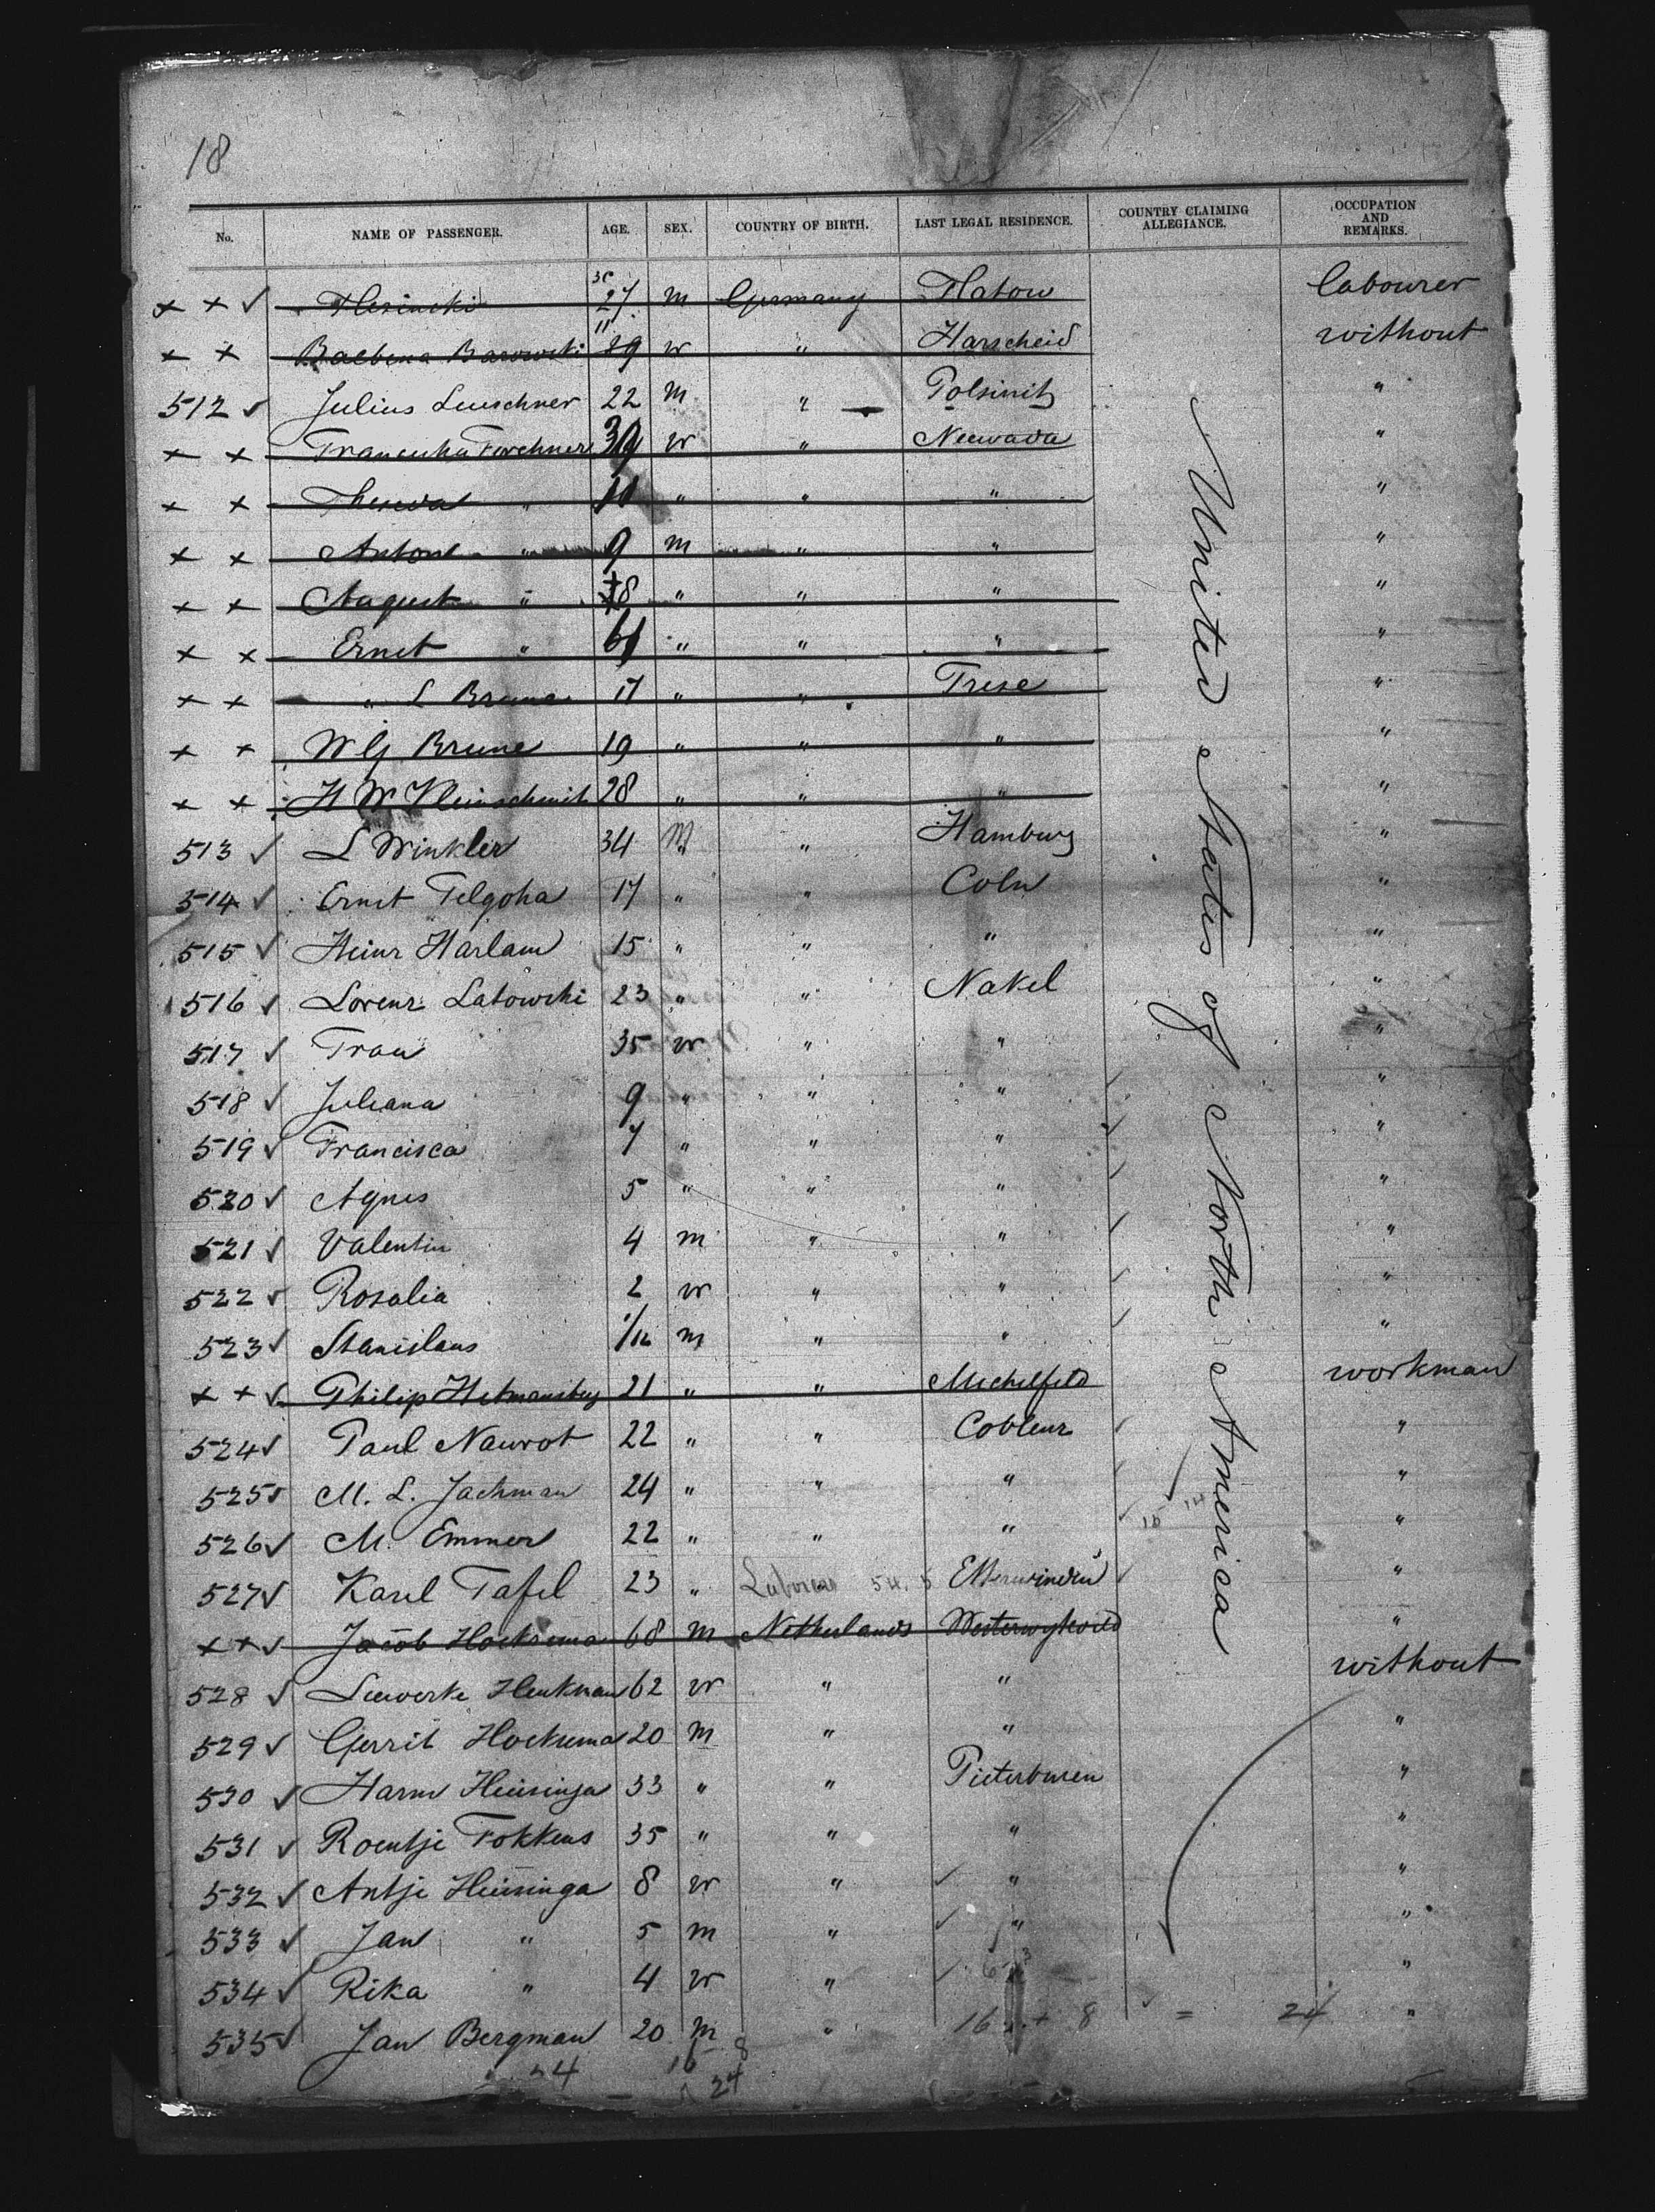 18
No. NAME OF PASSENGER. AGE. SEX. COUNTRY OF BIRTH. LAST LEGAL RESIDENCE. COUNTRY CLAIMING ALLEGIANCE. OCCUPATION AND REMARKS.
United States of North America
+ + ✓ 27 m Germany Flatow labourer
+ + Barowski w " Harscheid without
512 ✓ Julius Leuschner 22 m " Polsinitz "
+ + w " "
+ + " " " " "
+ + Anton " 9 m " " "
+ + August " 8 " " " "
+ + Ernst " " " " "
+ + " L Brune 17 " " Trese "
+ + W G Brune 19 " " " "
+ + H W Kleinschmit 28 " " " "
513 ✓ L Winkler 34 M " Hamburg "
514 ✓ Ernst Telgoha 17 " " Coln "
515 ✓ Heinr Harlam 15 " " " "
516 ✓ Lorenz Latowski 23 " " Nakel "
517 ✓ Frau 35 w " " "
518 ✓ Juliana 9 " " " "
519 ✓ Francisca 7 " " " "
520 ✓ Agnes 5 " " " "
521 ✓ Valentin 4 m " " "
522 ✓ Rosalia 2 w " " "
523 ✓ Stanislaus 1/12 m " " "
+ + ✓ Philip 21 " " Michelfeld workman
524 ✓ Paul Nawrot 22 " " Coblenz "
525 ✓ M. L. Jachman 24 " " " "
526 ✓ M. Emmerl 22 " " " "
527 ✓ Karel Tafel 23 " Etterwinden "
+ + ✓ Jacob Hoeksema 68 m Netherlands Westerwytwerd "
528 ✓ 62 w " " without
529 ✓ Gerrit Hoeksema 20 m " " "
530 ✓ Harm Heusinga 33 " " Pieterburen "
531 ✓ Roentje Fokkens 35 " " " "
532 ✓ Antje Heusinga 8 w " " "
533 ✓ Jan " 5 m " " "
534 ✓ Rika " 4 w " "
535 ✓ Jan Bergman 20 m " 16 + 8 = 24 "
24